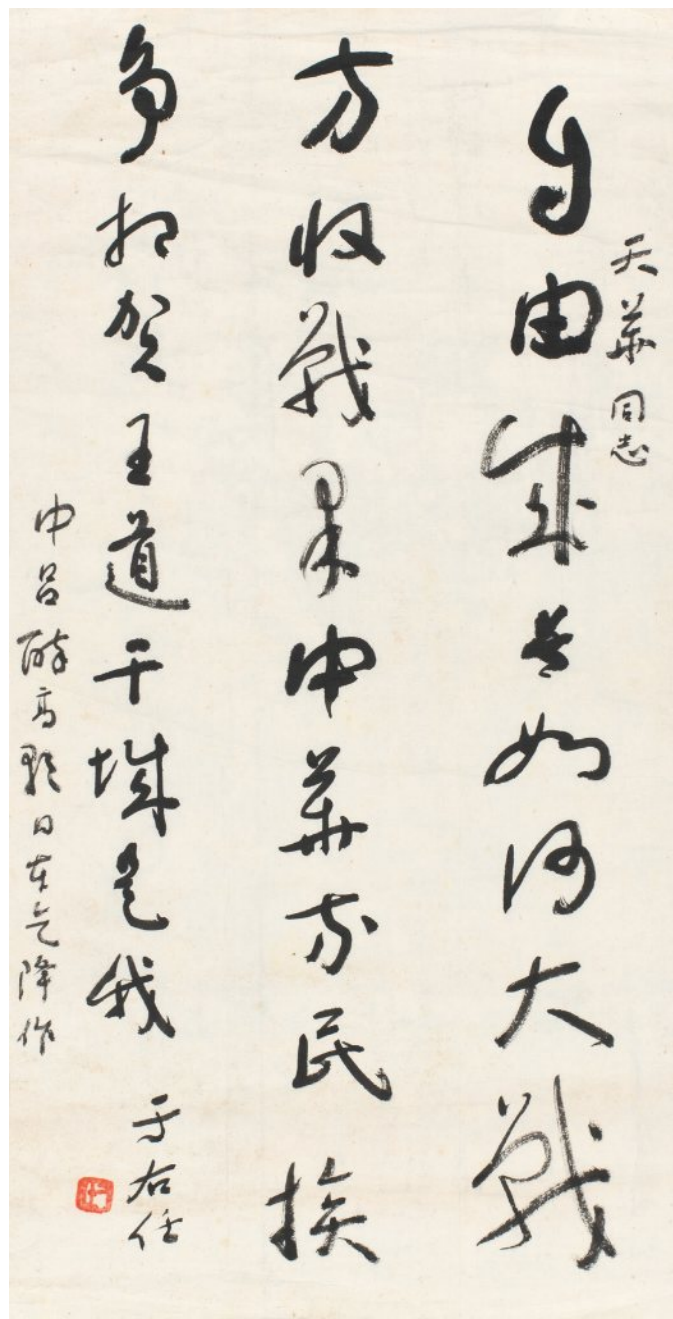 天華同志
自由成長如何大戰
方收戰果中華民族
爭相賀王道干城是我
于右任
中呂醉高歌日本乞降作